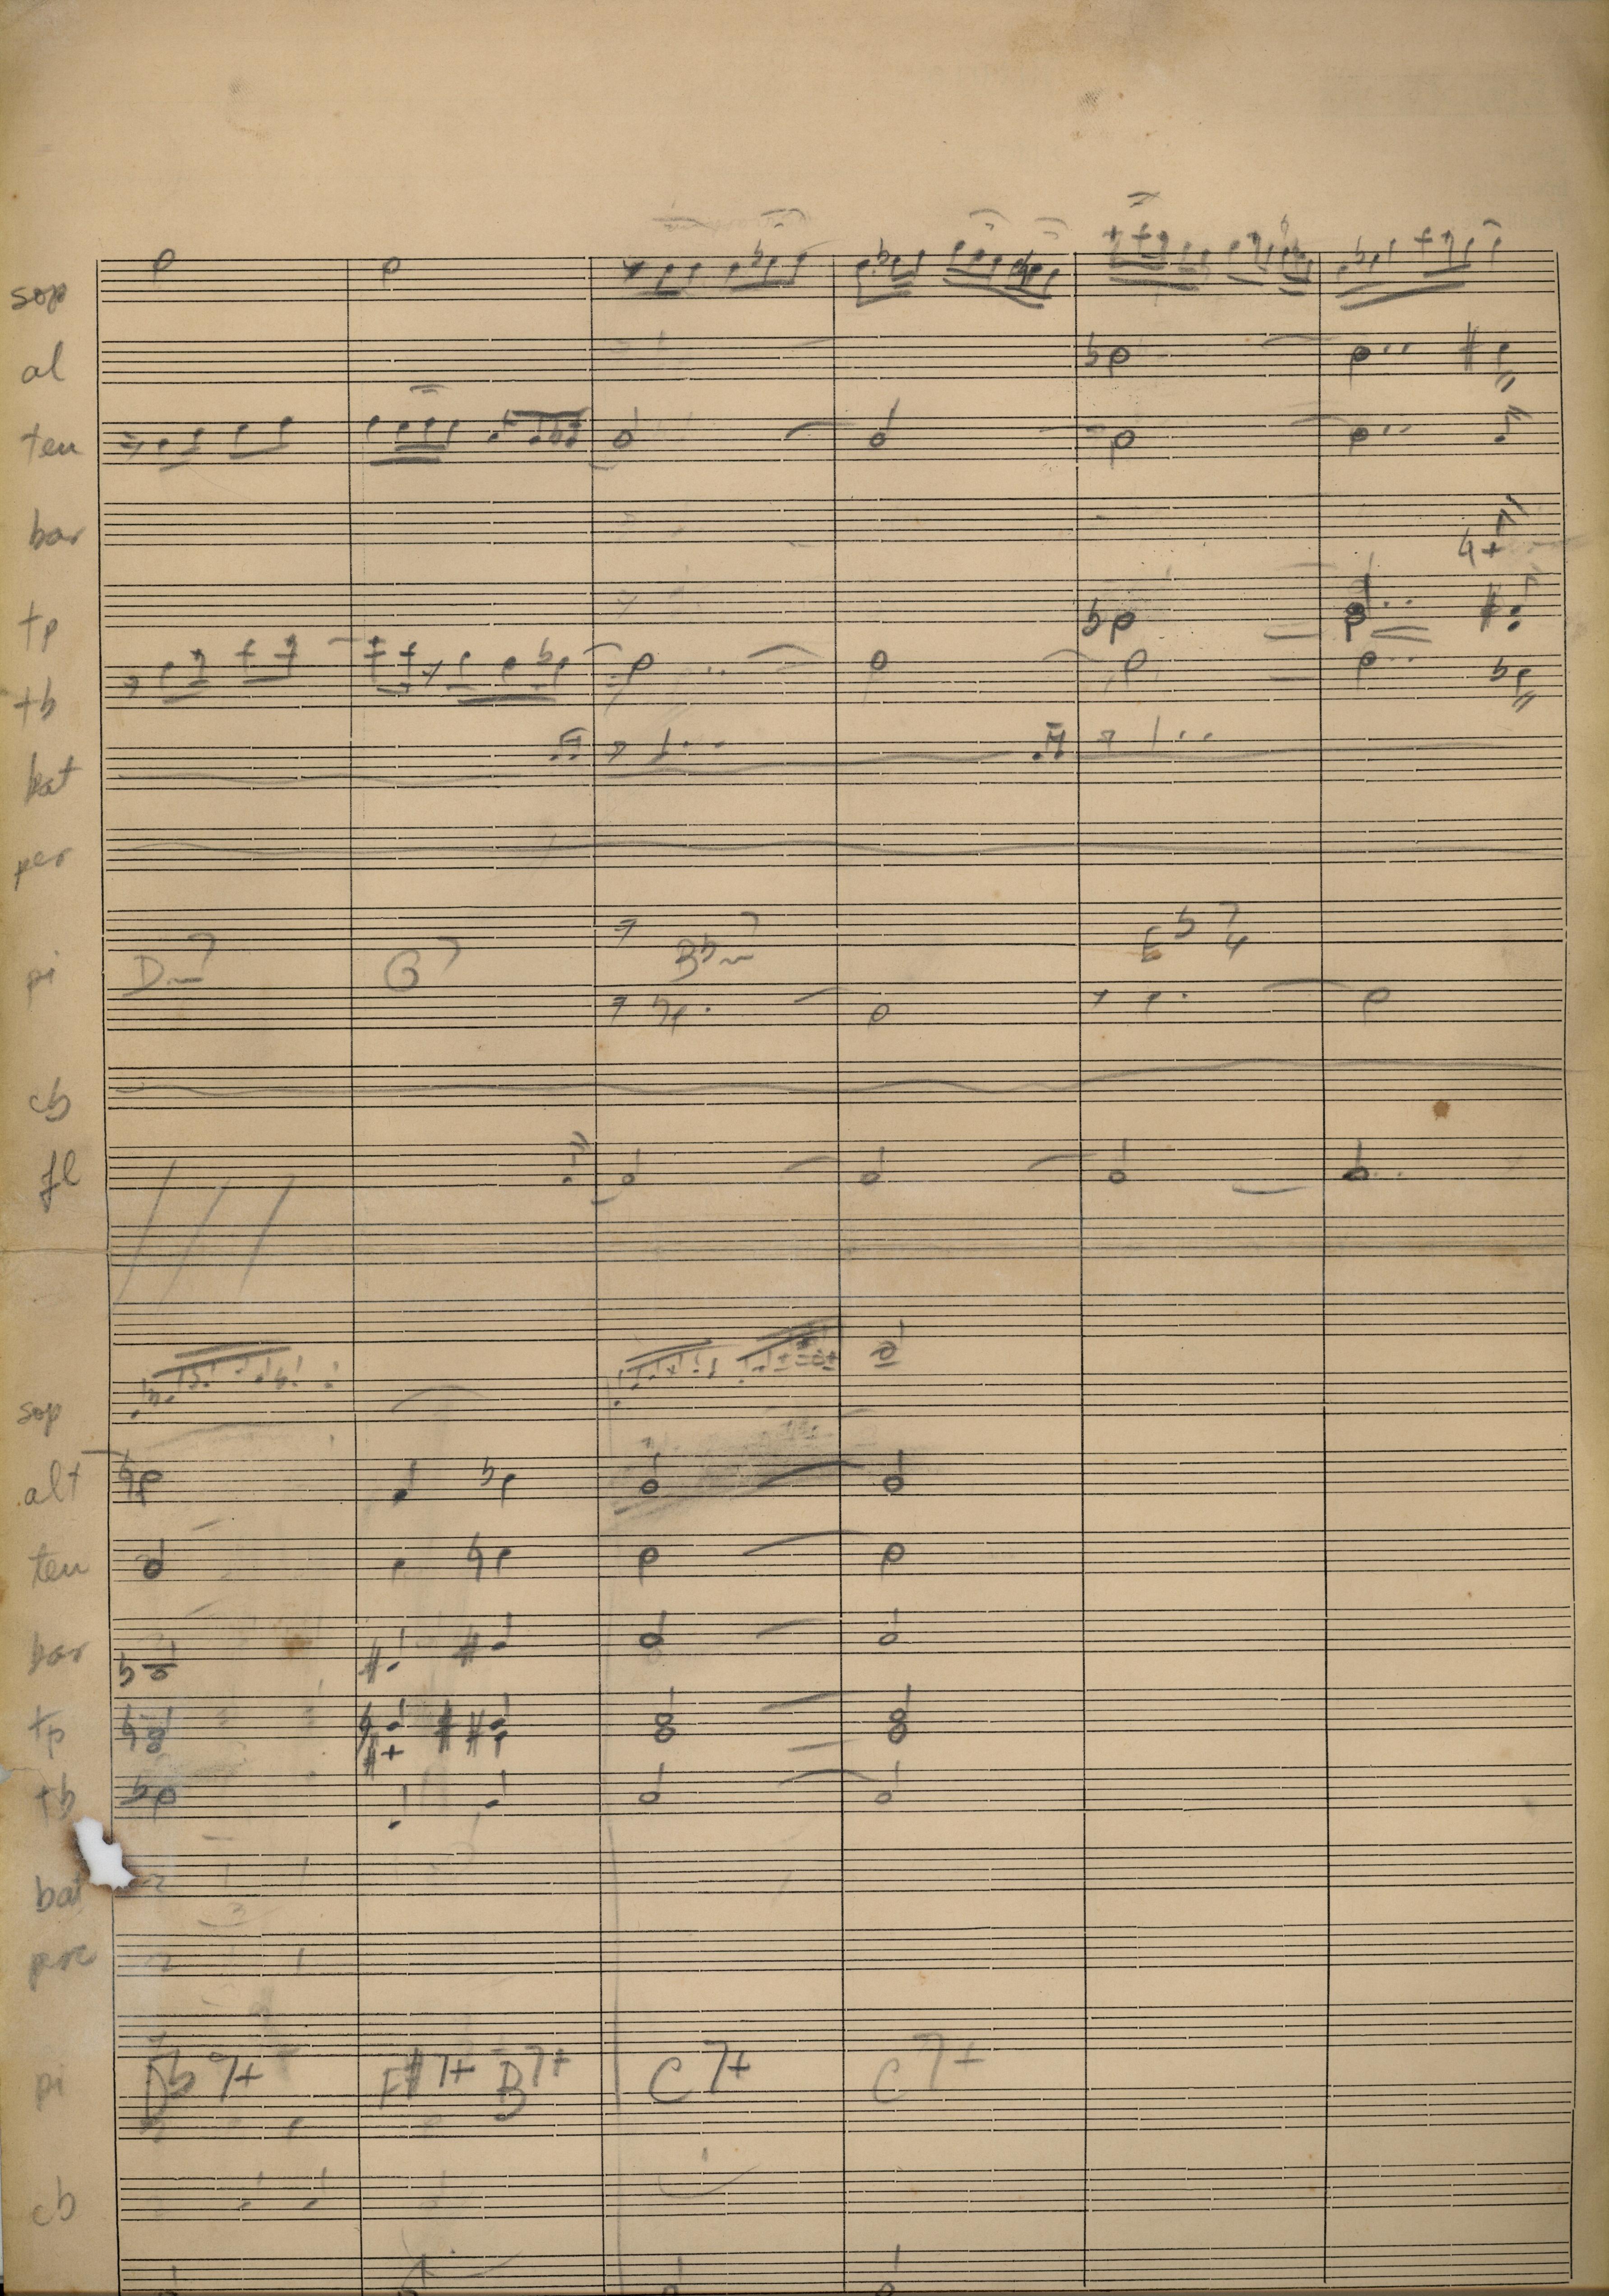 sop
al
ten
bar
tp
tb
bat
per
pi D-7 G7 Bb-7 Eb7 4
cb
fl
sop
alt
ten
bar
tp
tb
bat
3
perc
pi Db7+ F#7+ B7+ C7+ C7+
cb